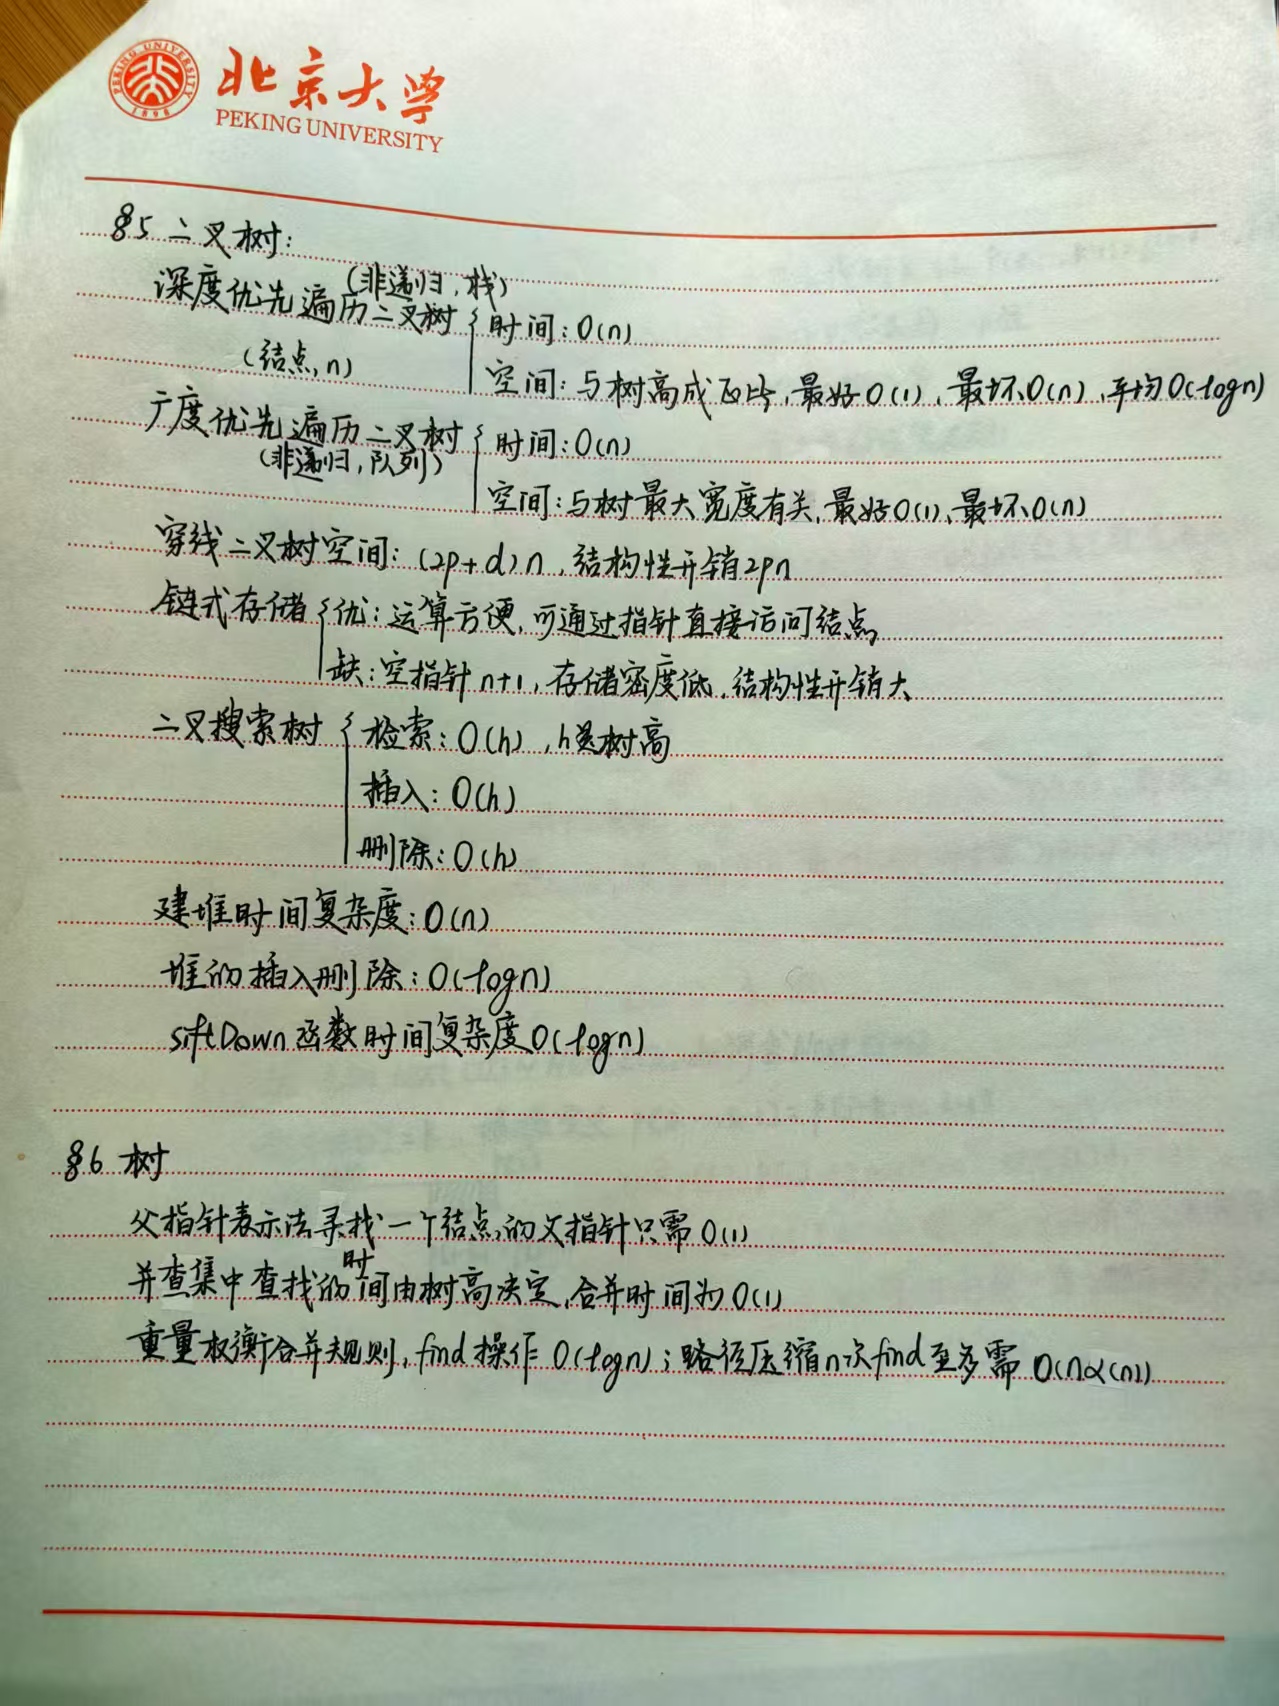 PEKING UNIVERSITY
1898
北京大学
PEKING UNIVERSITY
§5 二叉树:
(非递归,栈)
深度优先遍历二叉树 { 时间: O(n)
(结点, n)
空间: 与树高成正比, 最好O(1), 最坏O(n), 平均O(logn)
广度优先遍历二叉树 { 时间: O(n)
(非递归,队列)
空间: 与树最大宽度有关, 最好O(1), 最坏O(n)
穿线二叉树空间: (2p+d)n, 结构性开销2pn
链式存储 { 优: 运算方便, 可通过指针直接访问结点
缺: 空指针n+1, 存储密度低, 结构性开销大
二叉搜索树 { 检索: O(h), h是树高
插入: O(h)
删除: O(h)
建堆时间复杂度: O(n)
堆的插入删除: O(logn)
siftDown函数时间复杂度O(logn)
§6 树
父指针表示法寻找一个结点的父指针只需O(1)
并查集中查找的时间由树高决定, 合并时间为O(1)
重量权衡合并规则, find操作O(logn); 路径压缩n次find至多需O(nα(n))